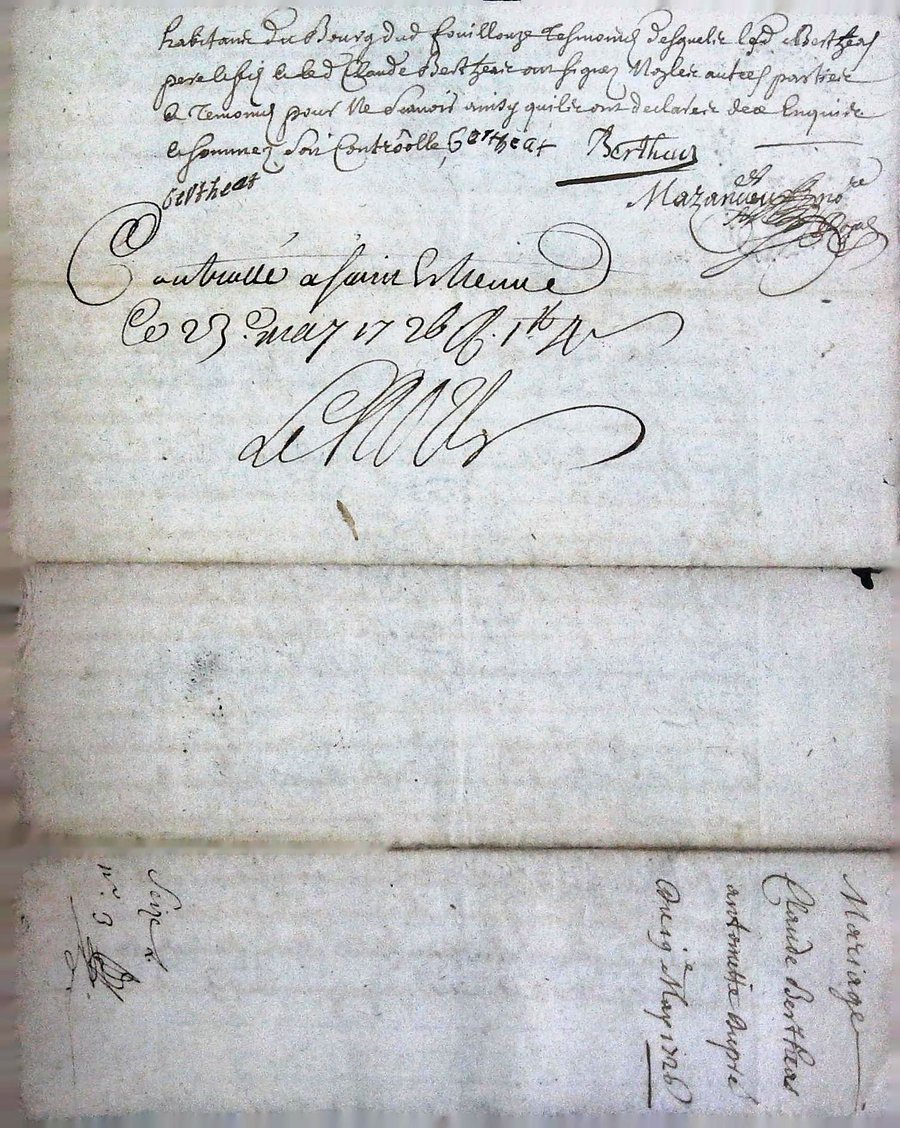 habitans du Bourg dud fouillouze Tesmoins desquelz led Bertheas
pere et fils et led Claude Bertheas ont signez Non les autres parties
& Temoins pour ne scavoir ainsy quils ont declarer de ce Enquis
et sommez Soit Controolle Bertheat Bertheas
bertheat
Mazancieu
et no.re Royal
Controlle a saint Estienne
Ce 23.e may 1726
Mariage
Claude Bertheas
antoinette dupré
Du 19e May 1726
n.o 3